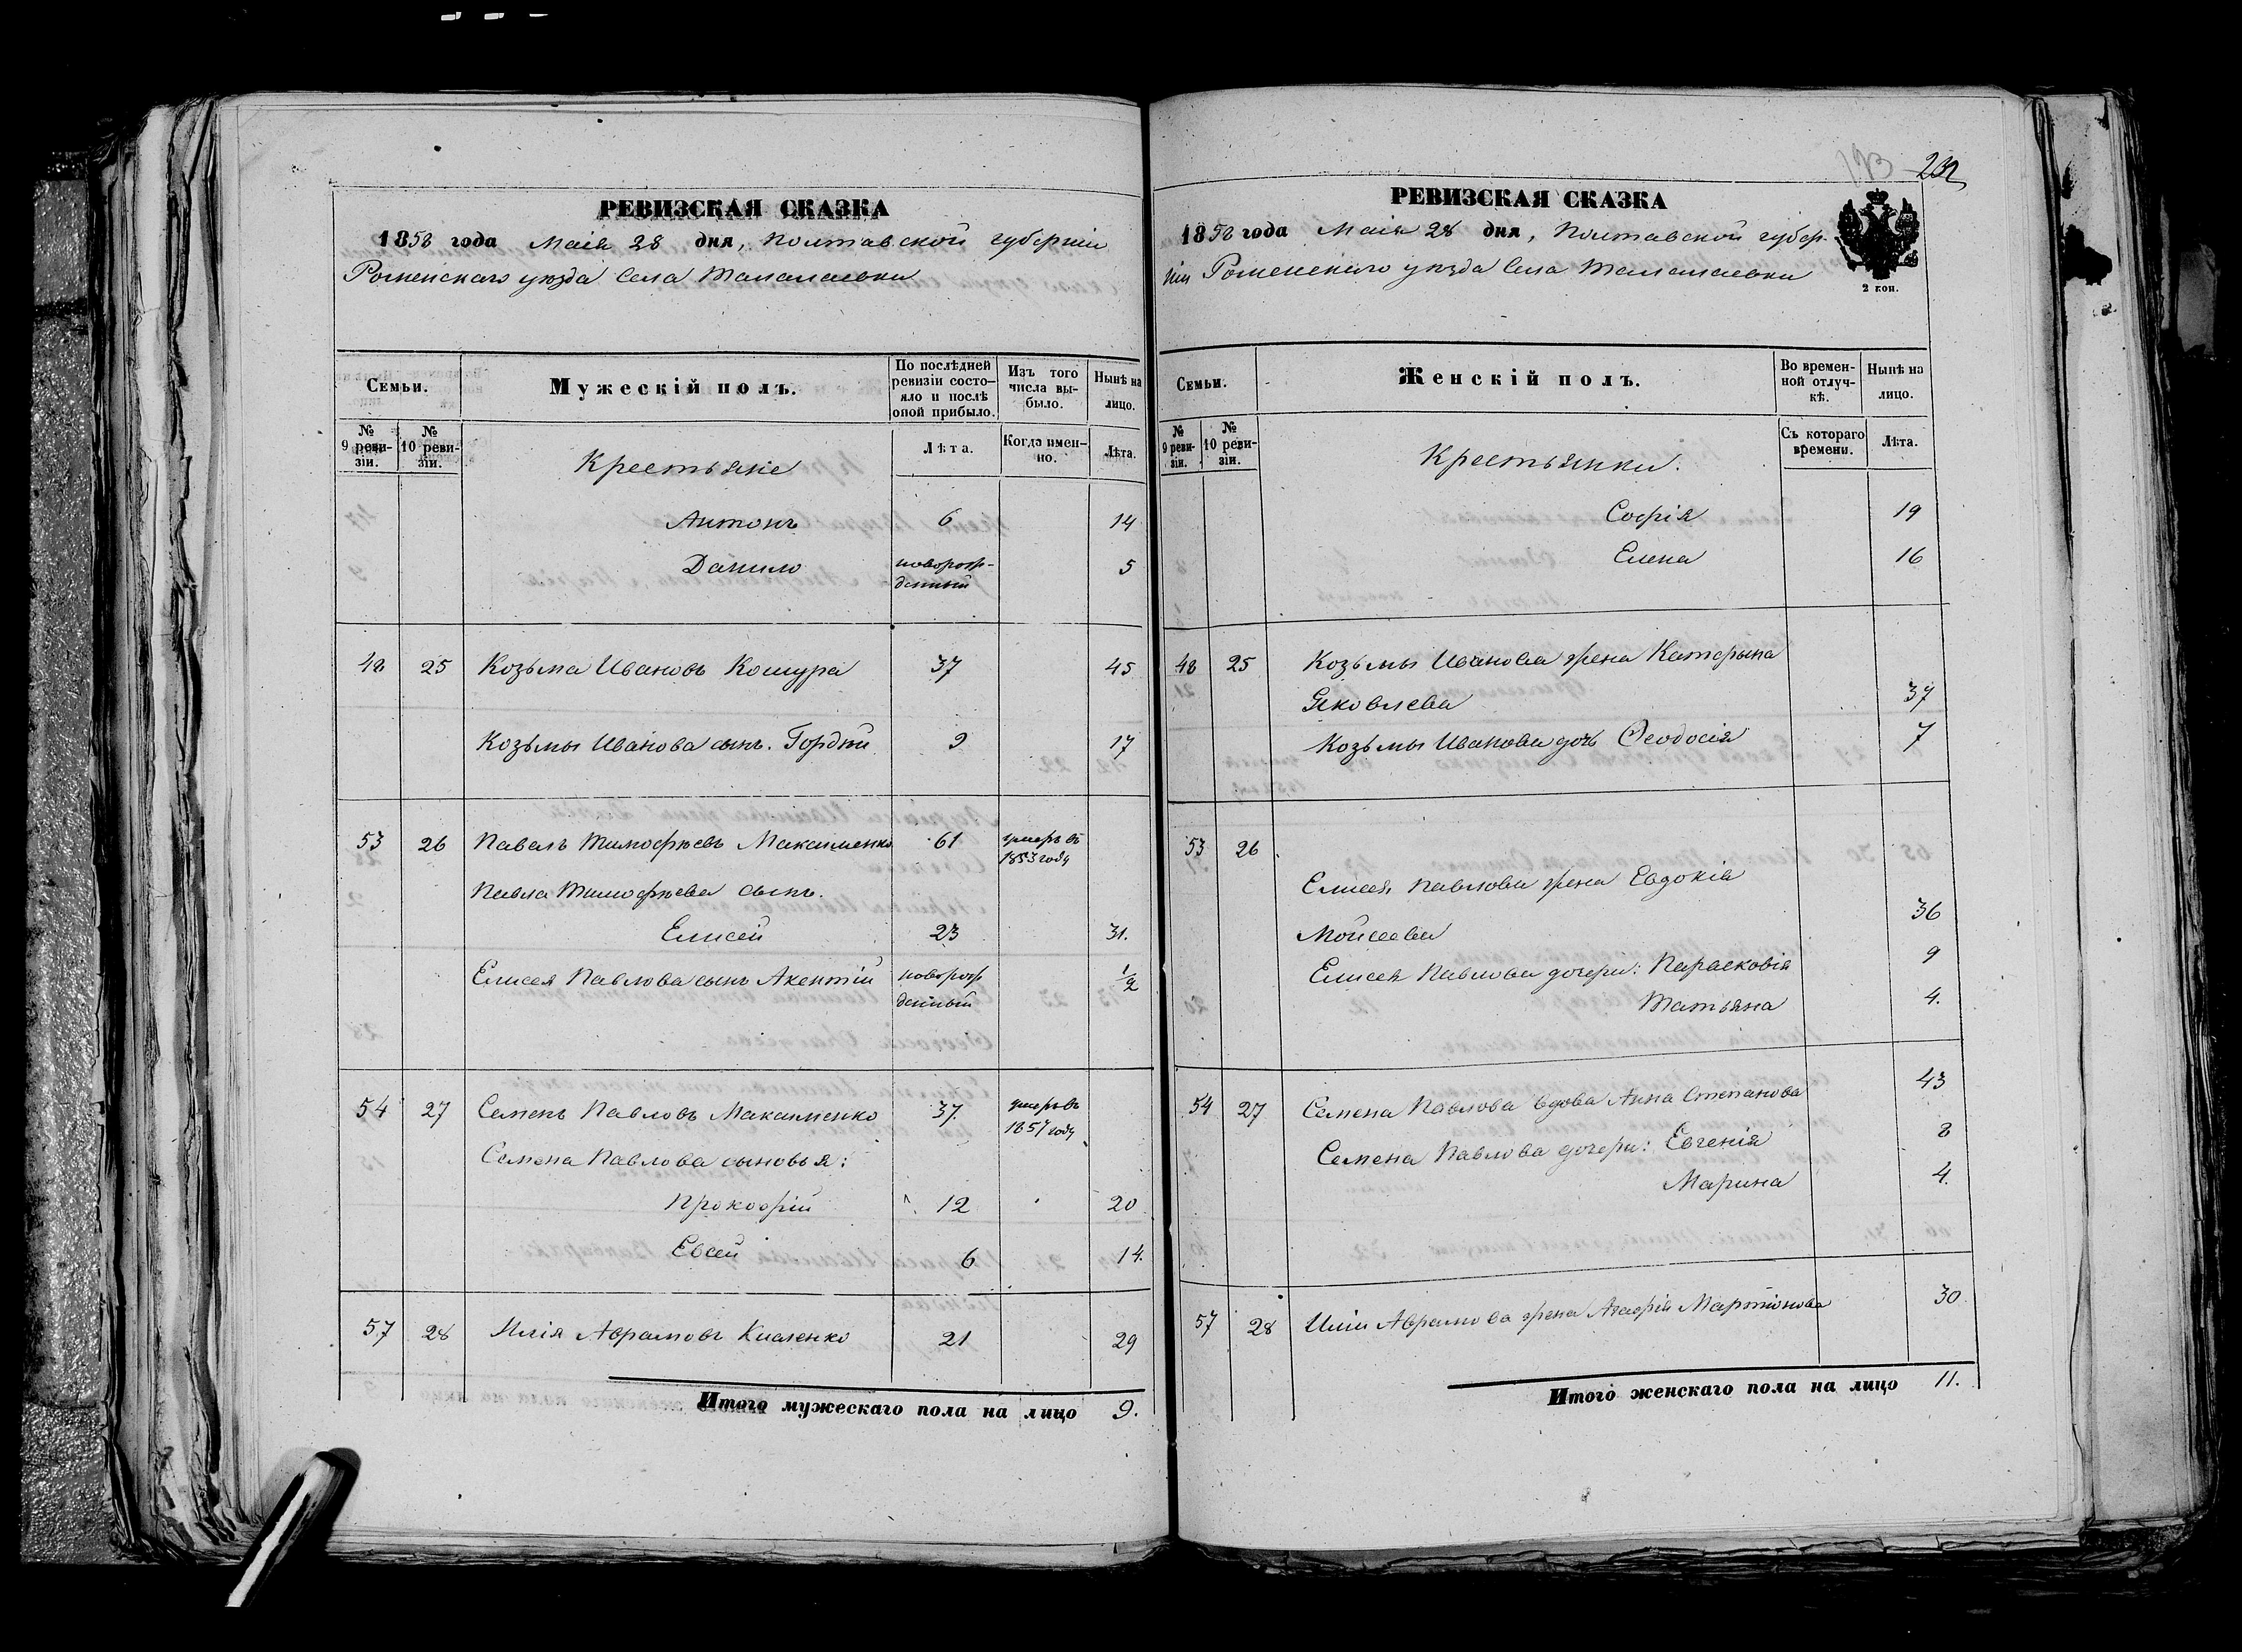 РЕВИЗСКАЯ СКАЗКА
1858 года Маія 28 дня, Полтавской губерніи
Роменскаго уѣзда Села Талалаевки
Семьи.
Мужескій полъ.
По послѣдней ревизіи состояло и послѣ оной прибыло.
Изъ того числа выбыло.
Нынѣ на лицо.
№ 9 ревизіи.
№ 10 ревизіи.
Крестьяне
Лѣта.
Когда именно.
Лѣта.
Антонъ 6 14
Данило новорож-
денный 5
48 25 Козьма Ивановъ Кошура 37 45
Козьмы Иванова сынъ. Гордѣй 9 17
53 26 Павалъ Тимофѣевъ Максименко 61 умеръ въ
1853 году
Павла Тимофѣева сынъ.
Елисей 23 31.
Елисея Павлова сынъ Акентій новорож
денный 1/2
54 27 Семенъ Павловъ Максименко 37. умеръ въ
1857 году
Семена Павлова сыновья:
Прокофій 12 20
Евсей 6 14.
57 28 Илія Аврамовъ 21 29
Итого мужескаго пола на лицо 9.
232
РЕВИЗСКАЯ СКАЗКА
1858 года Маія 28 дня, Полтавской губер-
ніи Роменскаго уѣзда Села Талалаевки
2 коп.
Семьи.
Женскій полъ.
Во временной отлучкѣ.
Нынѣ на лицо.
№ 9 ревизіи.
№ 10 ревизіи.
Крестьянки.
Съ котораго времени.
Лѣта.
Софія 19
Елена 16
48 25 Козьмы Иванова жена Катерына
Яковлева 37
Козьмы Иванова дочь Ѳеодосія 7
53 26
Елисея Павлова жена Евдокія
Мойсеева 36
Елисея Павлова дочери: Парасковія 9
Татьяна 4.
54 27 Семена Павлова вдова Анна Степанова 43
Семена Павлова дочери: Евгенія 8
Марина 4.
57 28 Иліи Аврамова жена Агафія Мартинова 30
Итого женскаго пола на лицо 11.